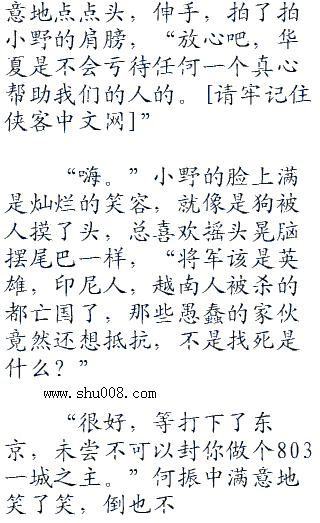 意地点点头，伸手，拍了拍
小野的肩膀，“放心吧，华
夏是不会亏待任何一个真心
帮助我们的人的。[请牢记住
侠客中文网]”
“嗨。”小野的脸上满
是灿烂的笑容，就像是狗被
人摸了头，总喜欢摇头晃脑
摆尾巴一样，“将军该是英
雄，印尼人，越南人被杀的
都亡国了，那些愚蠢的家伙
竟然还想抵抗，不是找死是
什么？”
www.shu008.com
“很好，等打下了东
京，未尝不可以封你做个803
一城之主。”何振中满意地
笑了笑，倒也不